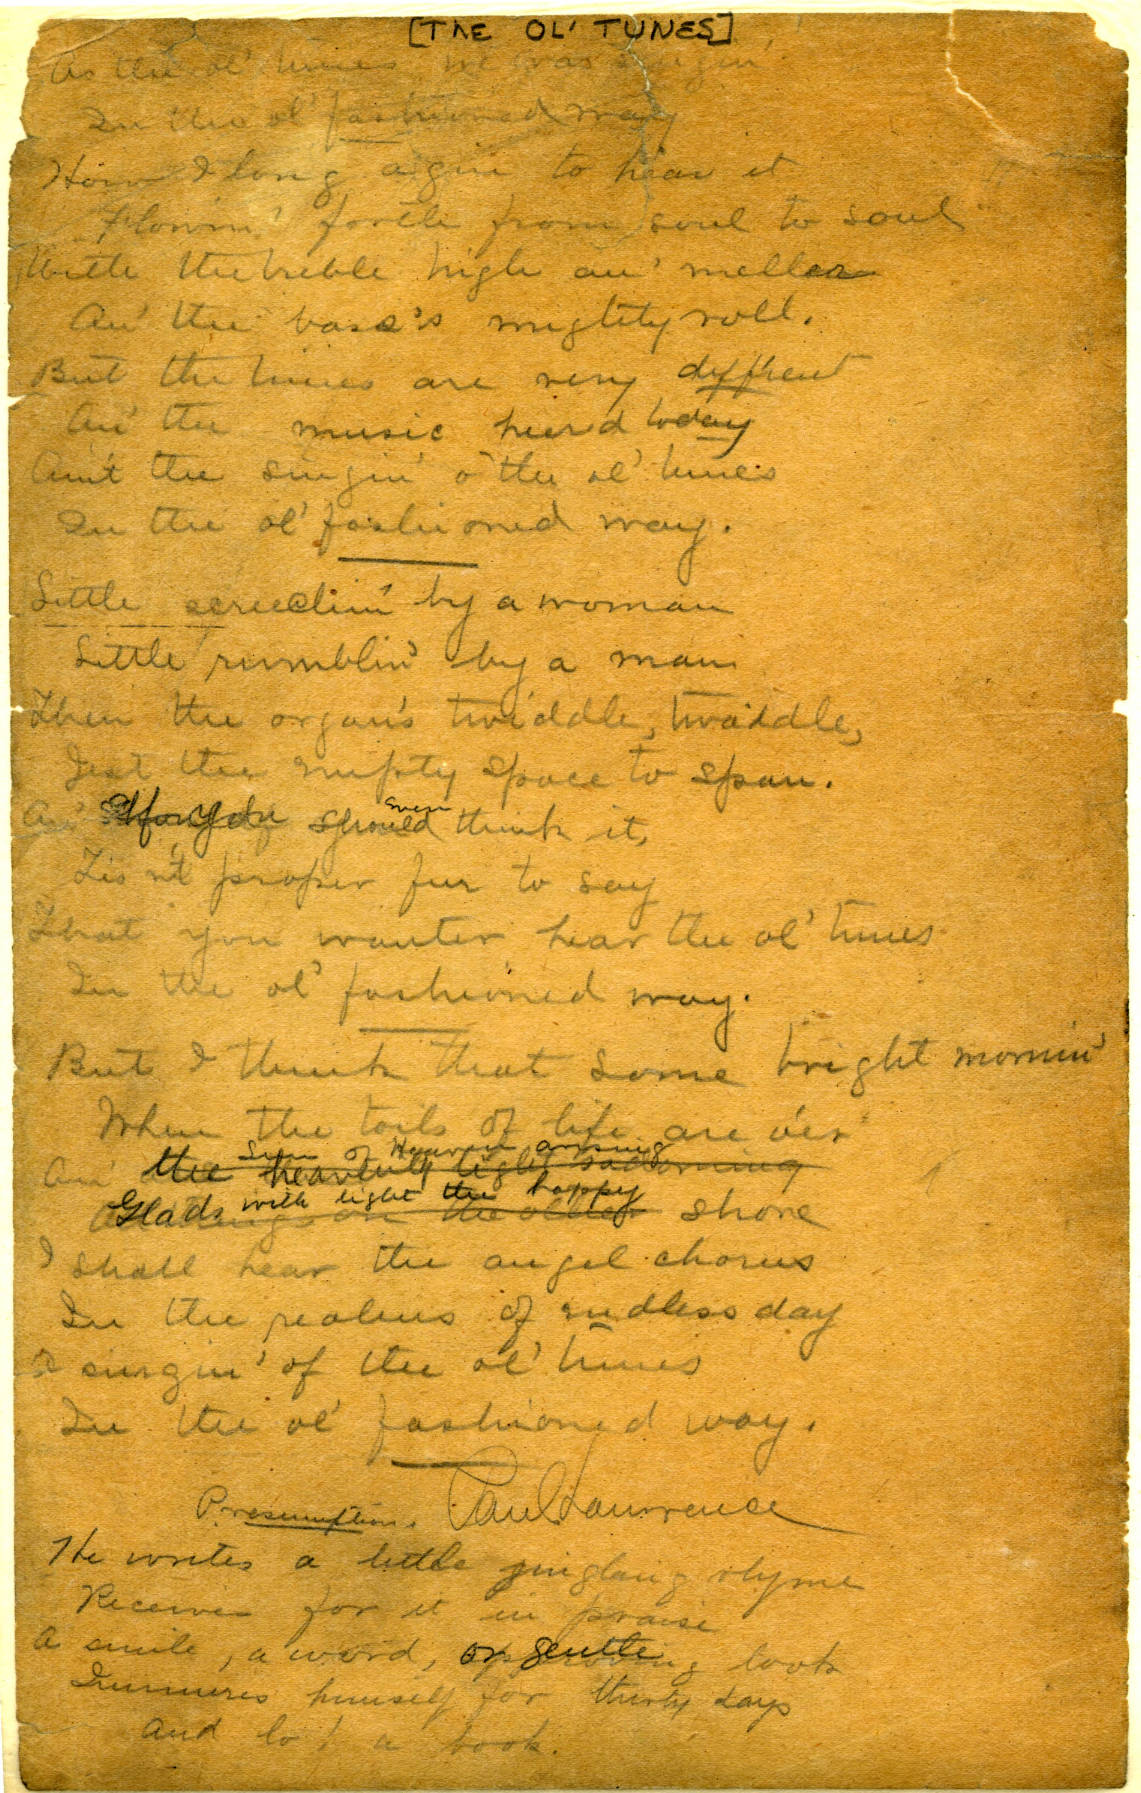 [THE OL' TUNES]
As the ol' tunes he was singin'
In the ol' fashioned way
How I long agin to hear it
Flowin' forth from soul to soul
With the treble high an' meller
An' the bass's mighty roll.
But the tunes are very diff'rent
An' the music heerd today
Ain't the singin' o' the ol' tunes
In the ol' fashioned way.
Little screechin' by a woman
Little rumblin' by a man
Then the organ's twiddle, twaddle,
Jest the empty space to span.
An' if you should even think it,
Tisn't proper fur to say
That you wanter hear the ol' tunes
In the ol' fashioned way.
But I think that some bright mornin'
When the toils of life are o'er
Sun o' Heaven arising
An' the heavenly light
Glads with light the happy
shore
I shall hear the angel chorus
In the realms of endless day
A singin' of the ol' tunes
In the ol' fashioned way.
Paul Laurence
Presumption.
He writes a little jingling rhyme
Receives for it in praise
A smile, a word, or gentle look
Immures himself for thirty days
And lo! a book.